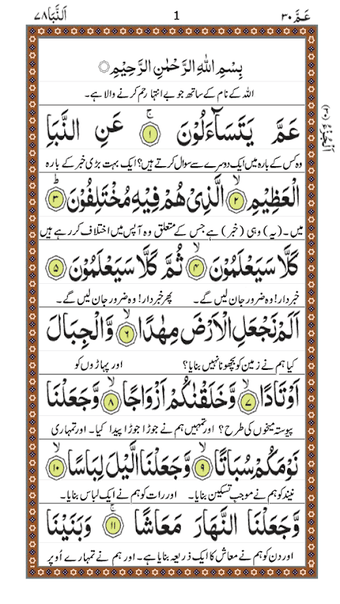 عَمَّ ٣٠ 1 اَلنَّبَاِ ٧٨
اَلْجُزْءُ (٣٠)
بِسْمِ اللّٰهِ الرَّحْمٰنِ الرَّحِيْمِ
اللہ کے نام کے ساتھ جو بے انتہا رحم کرنے والا ہے۔
عَمَّ يَتَسَآءَلُوْنَ ۚ ١ عَنِ النَّبَاِ
وہ کس کے بارہ میں ایک دوسرے سے سوال کرتے ہیں؟ ایک بہت بڑی خبر کے بارہ
الْعَظِيْمِ ۙ ٢ الَّذِىْ هُمْ فِيْهِ مُخْتَلِفُوْنَ ؕ ٣
میں۔ (یہ) وہی (خبر) ہے جس کے متعلق وہ آپس میں اختلاف کررہے ہیں
كَلَّا سَيَعْلَمُوْنَ ۙ ٤ ثُمَّ كَلَّا سَيَعْلَمُوْنَ ٥
خبردار! وہ ضرور جان لیں گے۔ پھر خبردار! وہ ضرور جان لیں گے۔
اَلَمْ نَجْعَلِ الْاَرْضَ مِهٰدًا ۙ ٦ وَّالْجِبَالَ
کیا ہم نے زمین کو بچھونا نہیں بنایا؟ اور پہاڑوں کو
اَوْتَادًا ۙ ٧ وَّخَلَقْنٰكُمْ اَزْوَاجًا ۙ ٨ وَّجَعَلْنَا
پیوستہ میخوں کی طرح؟ اور تمہیں ہم نے جوڑا جوڑا پیدا کیا۔ اور تمہاری
نَوْمَكُمْ سُبَاتًا ۙ ٩ وَّجَعَلْنَا الَّيْلَ لِبَاسًا ۙ ١٠
نیند کو ہم نے موجب تسکین بنایا۔ اور رات کو ہم نے ایک لباس بنایا۔
وَّجَعَلْنَا النَّهَارَ مَعَاشًا ۪ ١١ وَبَنَيْنَا
اور دن کو ہم نے معاش کا ایک ذریعہ بنایا ہے۔ اور ہم نے تمہارے اُوپر